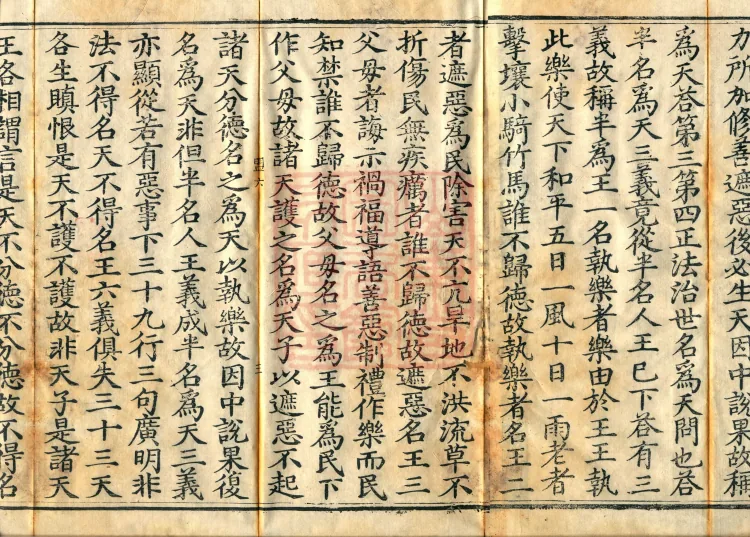 力所加修善遮惡後必生天因中說果故稱
為天荅第三第四正法治世名為天問也荅
半名為天三義竟從半名人王已下荅有三
義故稱半為王一名執樂者樂由於王王執
此樂使天下和平五日一風十日一雨老者
擊壤小騎竹馬誰不歸德故執樂者名王二
者遮惡為民除害天不亢旱地不洪流草不
折傷民無疾癘者誰不歸德故遮惡名王三
父母者誨示禍福導語善惡制禮作樂而民
知禁誰不歸德故父母名之為王能為民下
作父母故諸天護之名為天子以遮惡不起
諸天分德名之為天以執樂故因中說果復
名為天非但半名人王義成半名為天三義
亦顯從若有惡事下三十九行三句廣明非
法不得名天不得名王六義俱失三十三天
各生瞋恨是天不護不護故非天子是諸天
王各相謂言是天不分德不分德故不得名